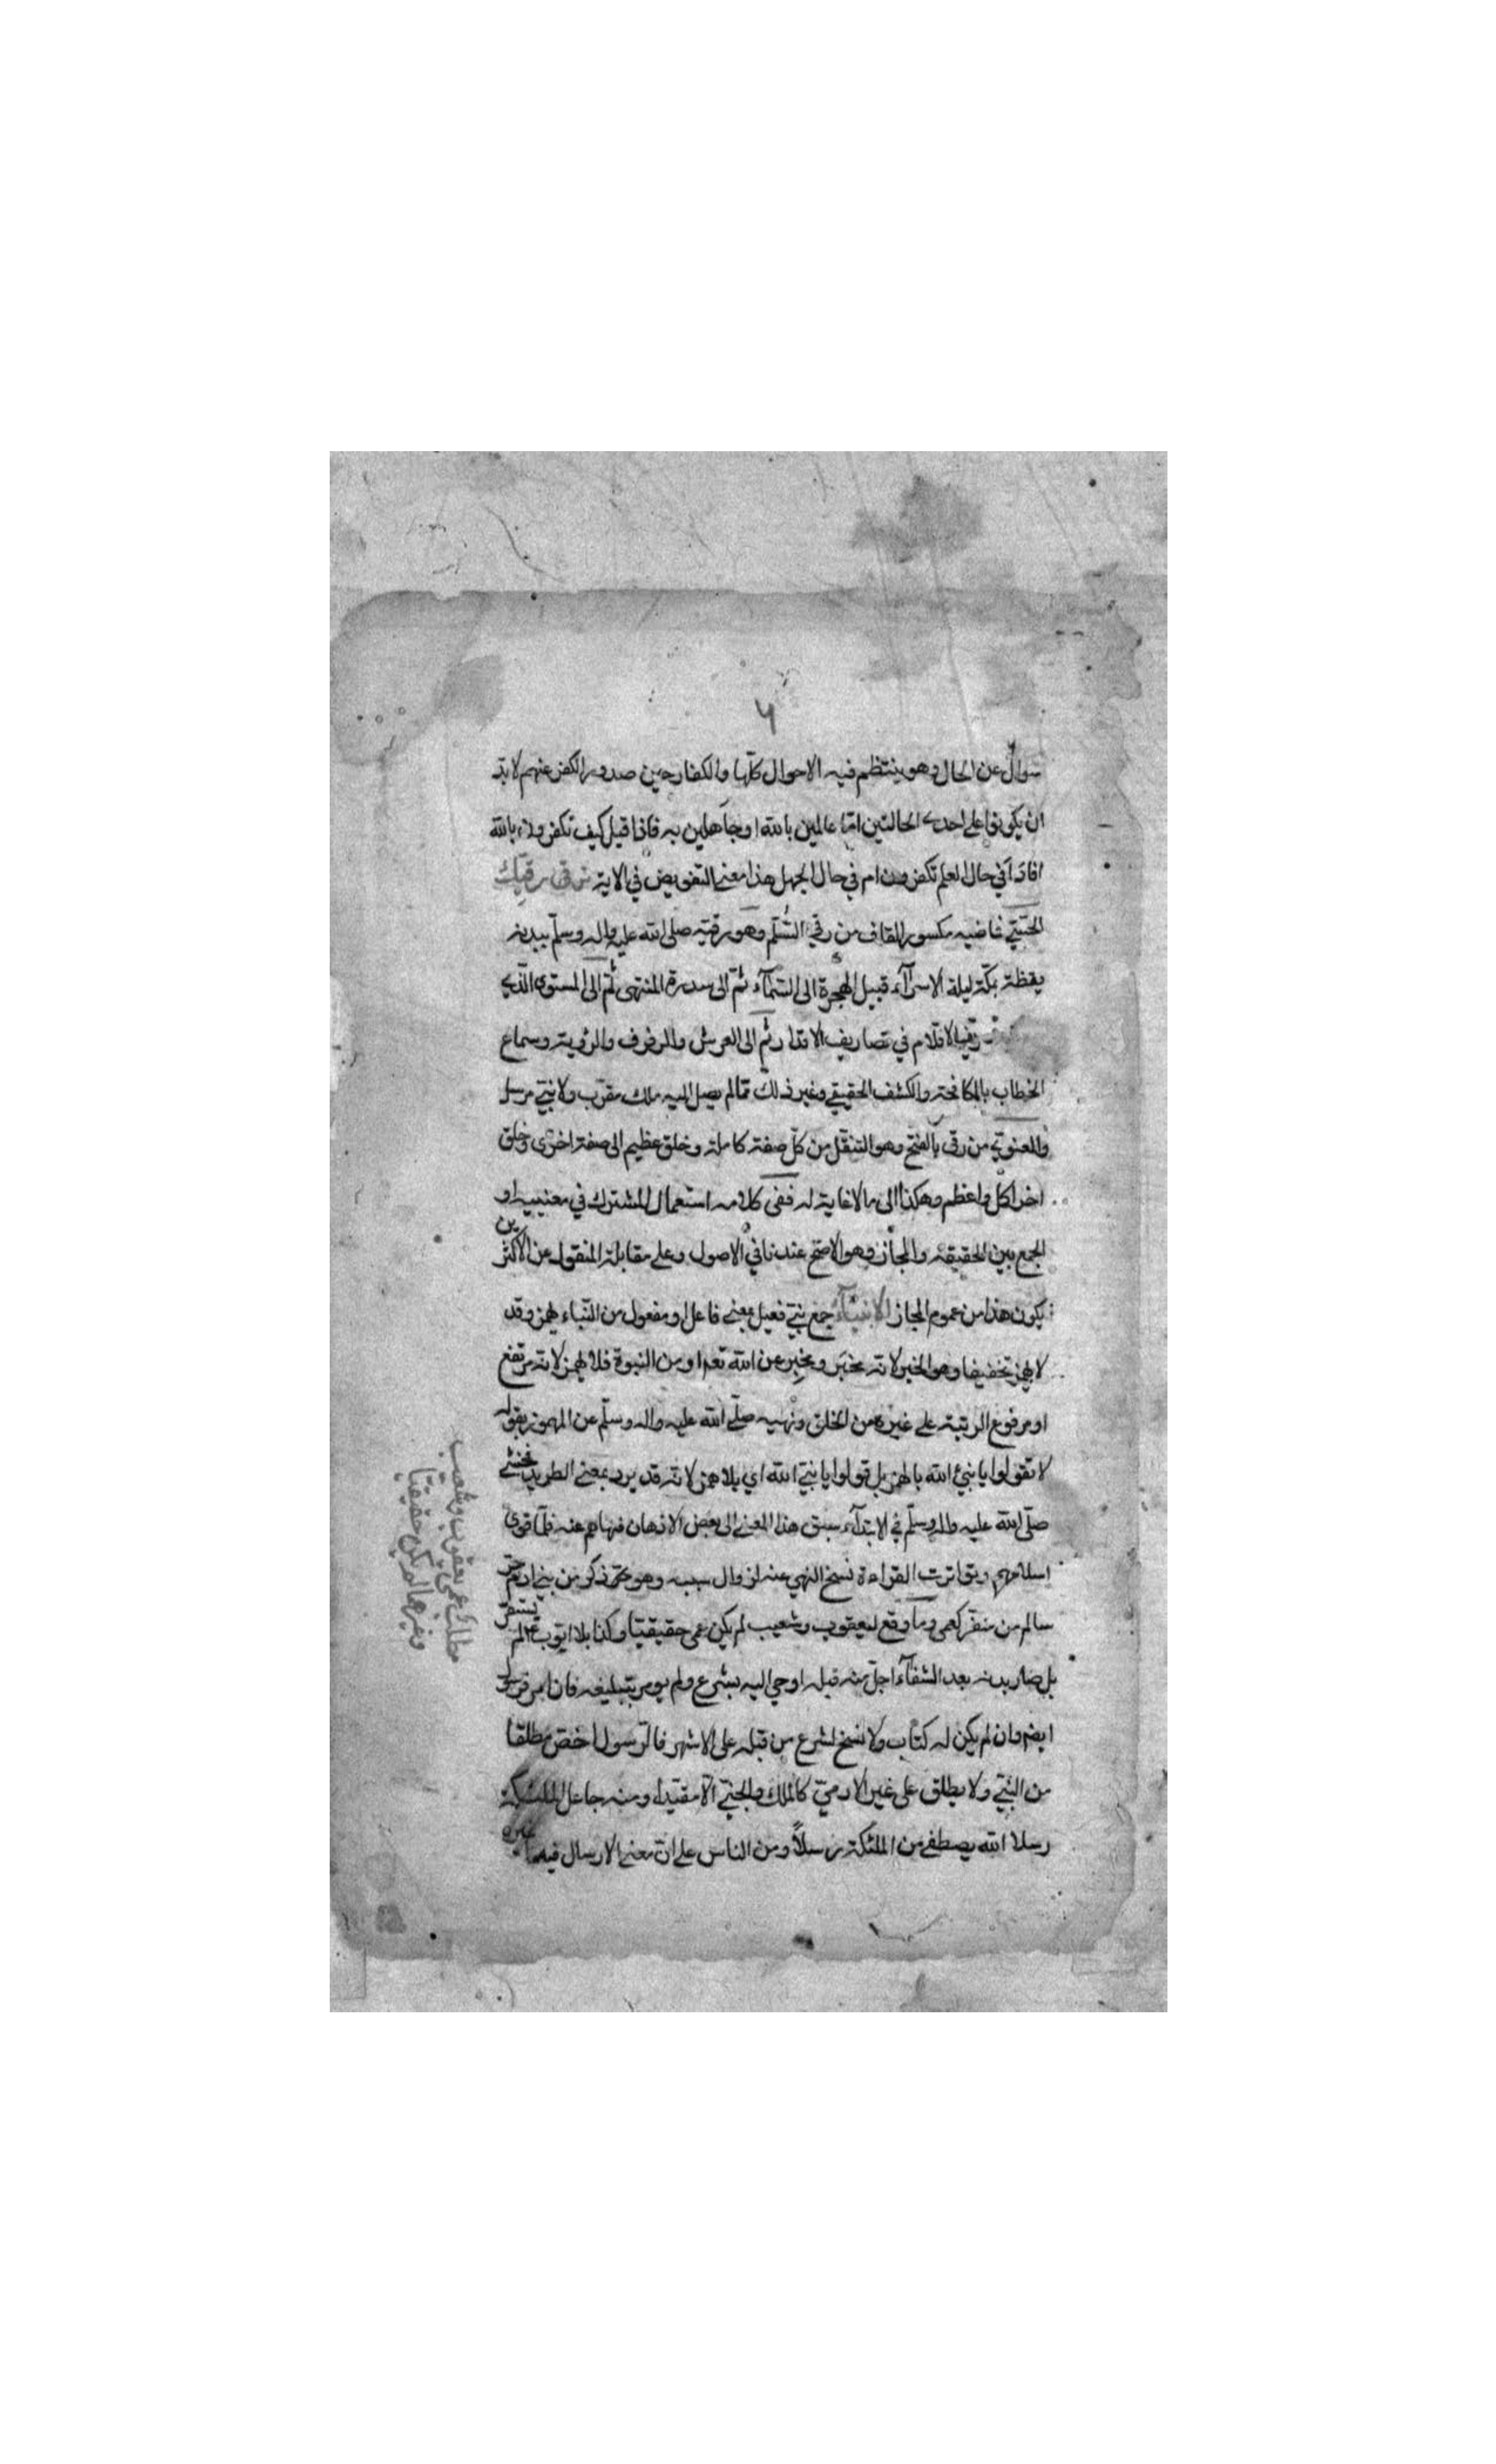 ٦
سوال عن الحال وهو ينتظم فيه الاحوال كلها والكفار حين صدور الكفر عنهم لا بد
ان يكونوا على احدى الحالتين اما عالمين بالله او جاهلين به فاذا قيل كيف تكفرون بالله
افاد افي حال العلم تكفرون ام في حال الجهل هذا معنى التفويض في الاية ترقى رقيك
الحسي ماضيه مكسور القاف من رقي السلم وهو رقيه صلى الله عليه واله وسلم ببدنه
يقظة بمكة ليلة الاسرآء قبيل الهجرة الى السمآء ثم الى سدرة المنتهى ثم الى المستوى الذي
الاقلام في تصاريف الاقدار ثم الى العرش والرفرف والرؤية وسماع
الخطاب بالمكافحة والكشف الحقيقي وغير ذلك مما لم يصل اليه ملك مقرب ولا نبي مرسل
والمعنوي من رقى بالفتح وهو التنقل من كل صفة كاملة وخلق عظيم الى صفة اخرى وخلق
اخر اكمل واعظم وهكذا الى ما لا غاية له ففي كلامه استعمال المشترك في معنييه او
الجمع بين الحقيقة والمجاز وهو الاصح عندنا في الاصول وعلى مقابلة المنقول عن الاكثرين
يكون هذا من عموم المجاز الانبيآء جمع نبي فعيل بمعنى فاعل او مفعول من النباء بهمز وقد
لا يهمز تخفيفا وهو الخبر لانه مخبر ومخبر عن الله تعم او من النبوة فلا يهمز لانه مرتفع
او مرفوع الرتبة على غيره من الخلق ونهيه صلى الله عليه واله وسلم عن المهموز بقوله
لا تقولوا يا نبئ الله بالهمز بل قولوا يا نبي الله اي بلا همز لانه قد يرد بمعنى الطريد فخشي
صلى الله عليه واله وسلم في الابتدآء سبق هذا المعنى الى بعض الاذهان فنهاهم عنه فلما قوى
اسلامهم وتواترت القراءة نسخ النهي عنه لزوال سببه وهو ذكر من بني ادم حر
سالم من منفر كعمى وما وقع ليعقوب وشعيب لم يكن عمى حقيقيا وكذا بلا ايوب لم يستقر
بل صار بدنه بعد الشفآء اجل منه قبله اوحي اليه بشرع ولم يومر بتبليغه فان امر فرسول
ايضا وان لم يكن له كتاب ولا نسخ لشرع من قبله على الاشهر فالرسول اخص مطلقا
من النبي ولا يطلق على غير الادمي كالملك والجني الا مقيدا ومنه جاعل الملئكة
رسلا الله يصطفي من الملئكة رسلاً ومن الناس على ان معنى الارسال فيهما غيره
مطلب عمى يعقوب وشعيب
وغيرهما لم يكن حقيقيا